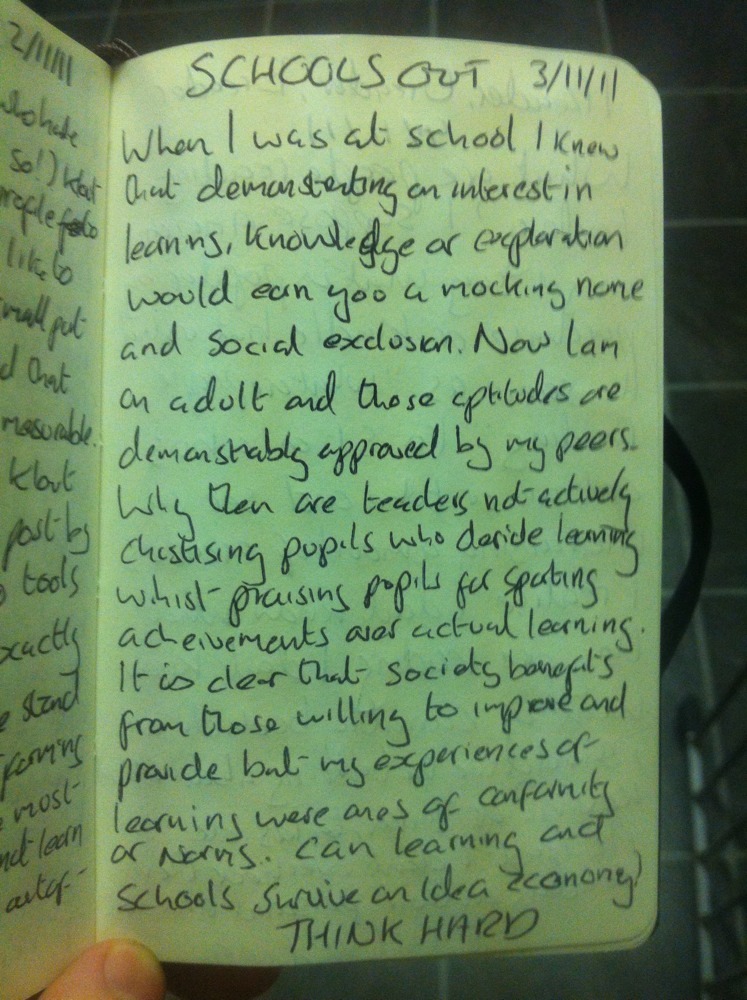 2/11/11
who hate
so!) klout
profile
like to
small put
d that
measurable.
klout
post by
tools
exactly
e stand
forming
e most
not learn
SCHOOLS OUT 3/11/11
When I was at school I knew
that demonsterting an interest in
learning, knowledge or exploration
would earn you a mocking name
and social exclusion. Now I am
an adult and those aptitudes are
demonstrably approved by my peers.
Why then are teachers not actively
chastising pupils who deride learning
whilst praising pupils for sporting
acheivements over actual learning.
It is clear that society benefits
from those willing to improve and
provide but my experiences of
learning were ones of conformity
or Norms. Can learning and
schools survive an Idea Economy?
THINK HARD